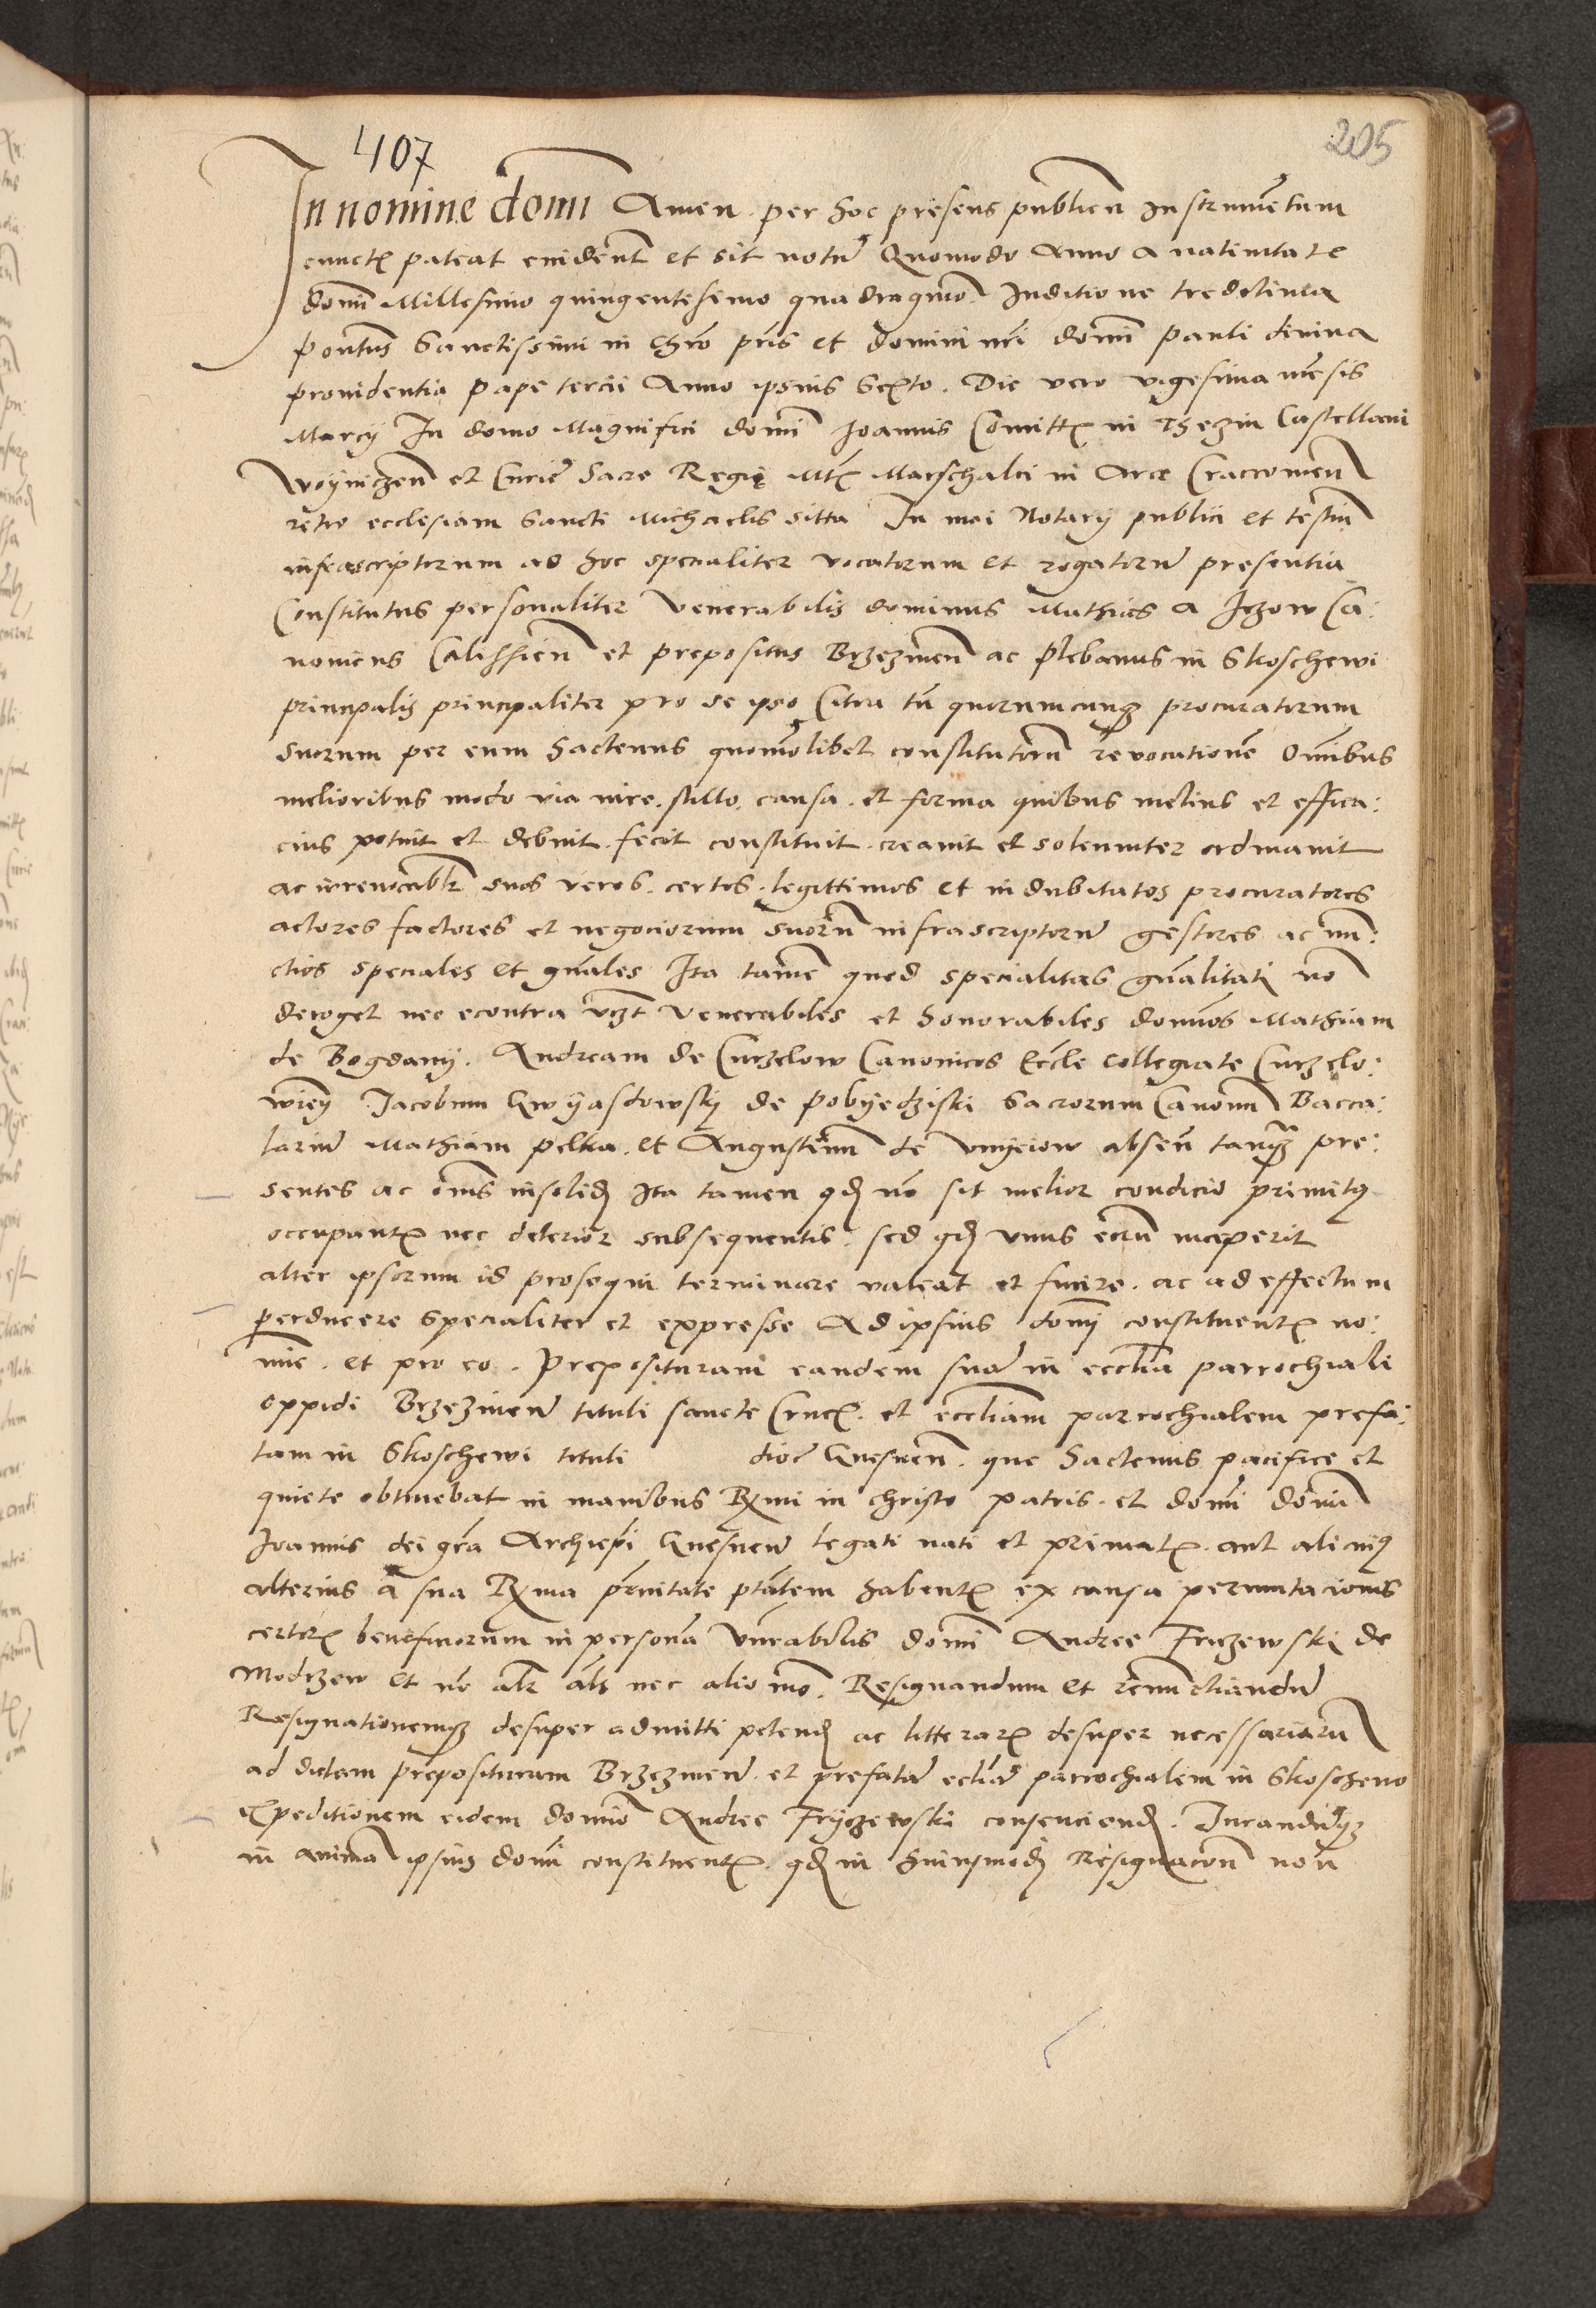 407
205
In nomine domi Amen. per hoc presens publicu Instrumetum
cunct pateat evident et sit notu Quomodo Anno a nativitate
domi Millesimo quingentesimo quadragmo. Inditione tredecima
Pontus Sanctissimi in chro pris et domini nri domi Pauli divina
providentia Pape tercii Anno ipsius Sexto. Die vero vigesima mesis
Marcij In domo Magnifici domi Joannis Comitt in Theczin Castellani
Woyniczen et Curie Sacre Regie Mt Marschalci in Arce Cracovien
retro ecclesiam Sancti Michaelis sitta In mei Notarij publici et testiu
infrascriptorum ad hoc specialiter vocatorum et rogatoru presentia
Constitutus personaliter Venerabilis dominus Mathias a Jczow Ca:
nonicus Calissien et prepositus Brzezinen ac Plebanus in Skoschewi
principalis principaliter pro se ipso Citra tn quorumcunq procuratorum
suorum per eum hactenus quomolibet constitutoru revocatione Omibus
melioribus modo via iure. stillo. causa. et forma quibus melius et effica:
cius potuit et debuit. fecit constituit. creavit et solenniter ordinavit
ac irrevocablr suos veros. certos. legittimos et indubitatos procuratores
actores factores et negociorum suoru infrascriptoru gestores ac nu:
ctios speciales et gnales Ita tame quod specialitas gnalitati no
deroget nec econtra vzt Venerabiles et honorabiles domnos Mathiam
de Bogdanij. Andream de Curzelow Canonicos Eccle collegiate Curzelo:
wien Jacobum Gwyasdowskij de Pobyedziski Sacrorum Canonu Bacca:
lariu Mathiam Pelka. et Augustinu de Unyeiow absen tanq pre:
sentes ac omes insolid Ita tamen qd no sit melior condicio primit9
occupant nec deterior subsequentis. sed qd unus eoru inceperit
alter ipsorum id prosequi terminare valeat et finire. ac ad effectum
perducere specialiter et expresse Ad ipsius domi constituent no:
mie. et pro eo. Preposituram eandem sua in ecclia parrochiali
oppidi Brzezinen tituli sancte Cruc. et eccliam parrochialem prefa:
tam in Skoschewi tituli dioc Gnesnen. que hactenus pacifice et
quiete obtinebat in manibus Rmi in christo patris. et domi domi
Joannis dei gra Archiepi Gnesnen legati nati et primat. aut alicui9
alterius a sua Rma prnitate ptatem habent ex causa permutacionis
certor beneficiorum in persona vnrabilis domi Andree Friczewski de
Modrzew et no alr als nec alio mo. Resignandum et renunctiandu
Resignationemq desuper admitti petend ac litterar desuper necessariaru
ad dictam preposituram Brzezinen. et prefata eccliam parrochialem in Skoschewo
expeditionem eidem domino Andree Fryczewski consenciend. Jurandu q
in anima ipsius domi constituent. qd in huiusmodi Resignacon non